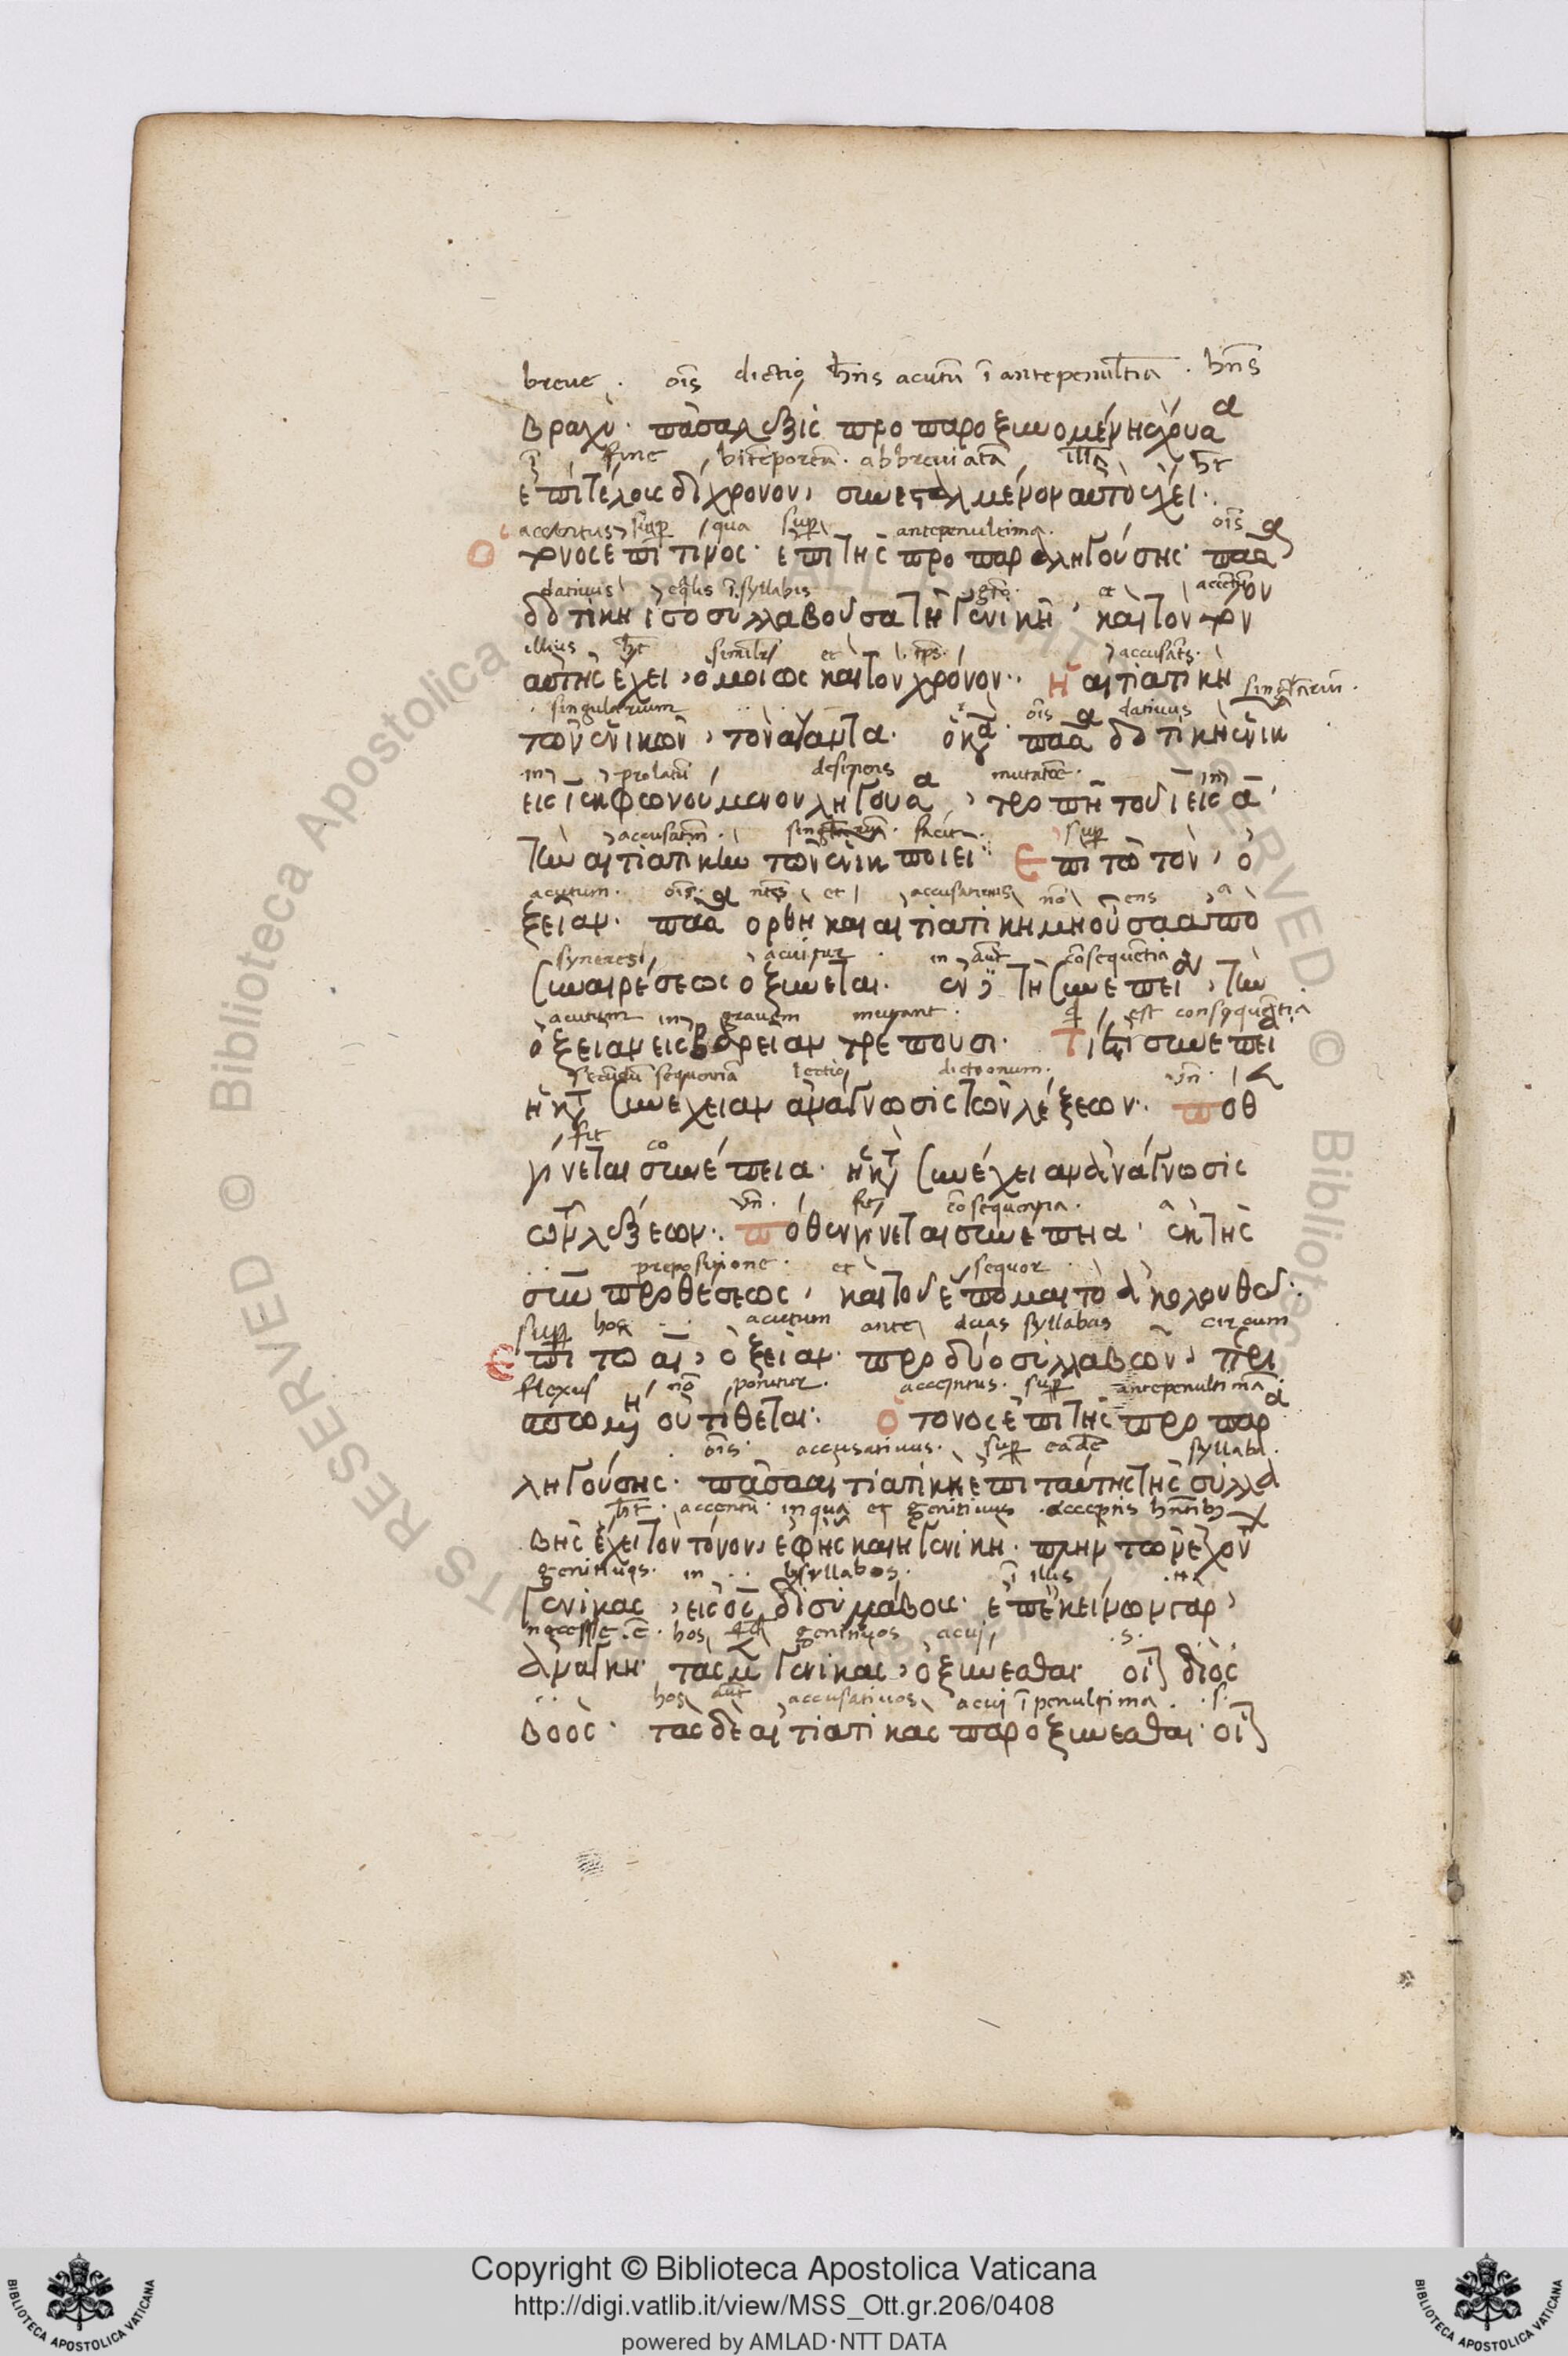 breve . oı̄s dictio hn̄s acutū ī antepenultīa . hn̄s
βραχύ· πᾶσα λέξις προπαροξυνομένη ἔχουσα
ī fine bitēporeā . abbreviatā illā ht̄
ἐπὶ τέλους δίχρονον, συνεσταλμένον αὐτὸ ἔχει·
accentus sup̄ qua sup̄ antepenultima . oı̄s
Ὁ τόνος ἐπί τινος· ἐπὶ τῆς προπαραληγούσης· πᾶσα
dativus eq̄lis ī syllabis gt̄o . et accentū
δοτικὴ ἰσοσυλλαβοῦσα τῇ γενικῇ, καὶ τὸν τόνον
illius ht̄ similr̄ et tp̄s . accusat̄s .
αὐτῆς ἔχει, ὁμοίως καὶ τὸν χρόνον·· Ἡ αἰτιατικὴ
singularium . singularium .
τῶν ἑνικῶν, τὸν αἴαντα. πᾶσα δοτικὴ ἑνικ
in prolatū desinens mutatōe . in
εἰς ῑ ἐκφωνούμενον λήγουσα, τροπῇ τοῦ ῑ εἰς ᾱ,
accusatm̄ . facit . sup̄
τὴν αἰτιατικὴν τῶν ἑνικ ποιεῖ·· Ἐπὶ τὸ τὸν, ὀ
acutum . oı̄s . rectus et accusativus nō ens a
ξεῖαν. πᾶσα ὀρθὴ καὶ αἰτιατικὴ μὴ οὖσα ἀπὸ
syneresi acuitur . in aut̄ cōsequentia
συναιρέσεως ὀξύνεται. ἐν δὲ τῇ συνεπείᾳ, τὴν
acutum in gravem mutant . qd est consequentia
ὀξεῖαν εἰς βαρεῖαν τρέπουσι. Τί ἐστι συνέπει
secundū sequentiā lectio dictionum . vn̄ .
ἡ κατὰ συνέχειαν ἀνάγνωσις τῶν λέξεων· πόθ
fit co
γίνεται συνέπεια. ἡ κατὰ συνέχειαν ἀνάγνωσις
vn̄ . fit cōsequentia . a
τῶν λέξεων·. πόθεν γίνεται συνέπεια· ἐκ τῆς
prepositione . et sequor .
σὺν προθέσεως, καὶ τοῦ ἕπομαι τὸ ἀκολουθῶ·
sup̄ hos acutum ante duas syllabas circum
Ἐπὶ τὸ αι, ὀξεῖαν· πρὸ δύο συλλαβῶν, περι
flexus nō ponitur . accentus . sup̄ antepenultimā .
σπωμένη οὐ τίθεται· Ὁ τόνος ἐπὶ τῆς προπαρα
oı̄s . accusativus . sup̄ eadē syllaba .
ληγούσης· πᾶσα αἰτιατικὴ ἐπὶ ταύτης τῆς συλλα
ht̄ . accentū in qua et genitivus . acceptis hn̄tibꝫ
βῆς ἔχει τὸν τόνον, ἐφ' ἧς καὶ ἡ γενικὴ. πλὴν τῶν ἐχόν
genitivos . in bsyllabos . ī illis
γενικὰς, εἰς ος δισυλλάβους· ἐπ' ἐκείνων γὰρ,
necesse .ē . hos genitivos acui .s.
ἀνάγκη τὰς μὲν γενικὰς, ὀξύνεσθαι οἷον διὸς
hos aut̄ accusativos acui ī penultima . .s.
βοός· τὰς δὲ αἰτιατικὰς παροξύνεσθαι· οἷον
Copyright © Biblioteca Apostolica Vaticana
http://digi.vatlib.it/view/MSS_Ott.gr.206/0408
powered by AMLAD·NTT DATA